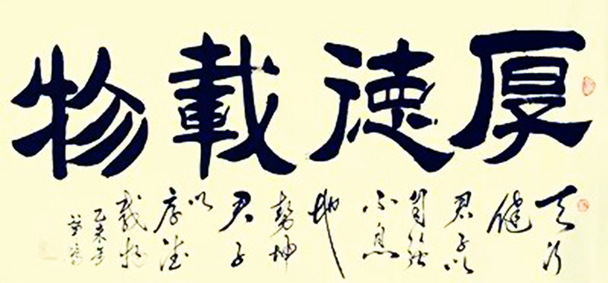 厚德載物
天行
健
君子以
自強
不息
地
勢坤
君子
以
厚德
載物